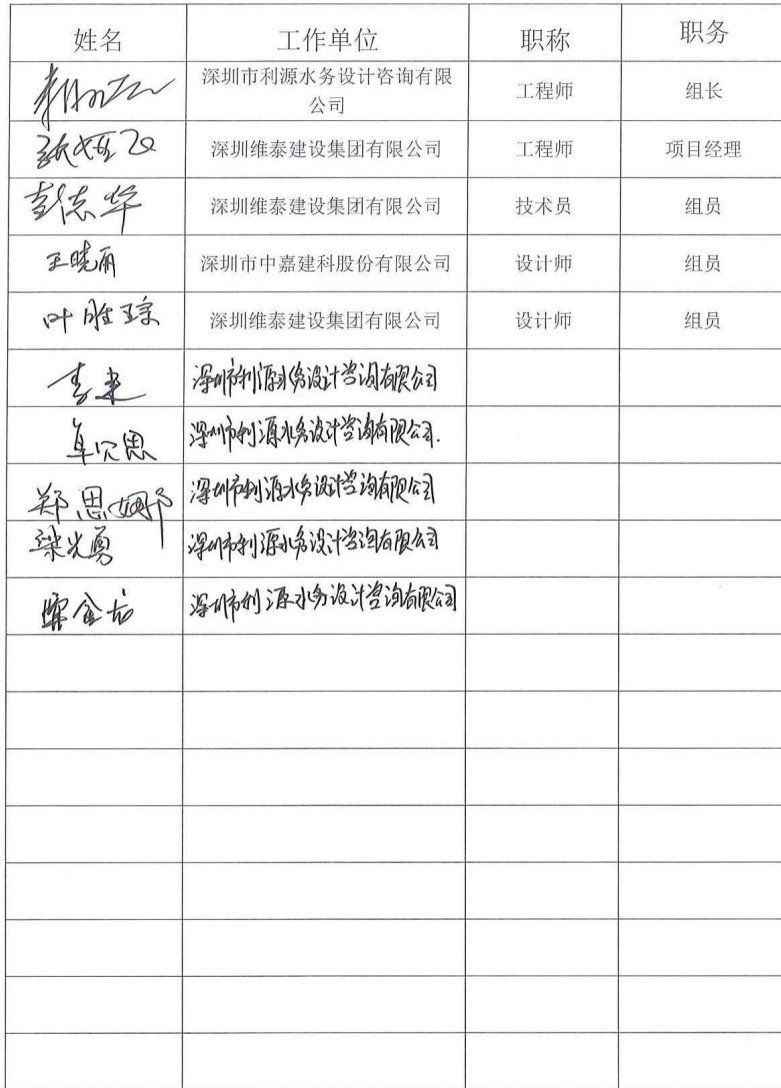 姓名 工作单位 职称 职务
深圳市利源水务设计咨询有限
公司 工程师 组长
深圳维泰建设集团有限公司 工程师 项目经理
彭志华 深圳维泰建设集团有限公司 技术员 组员
王晓雨 深圳市中嘉建科股份有限公司 设计师 组员
叶胜琼 深圳维泰建设集团有限公司 设计师 组员
深圳市利源水务设计咨询有限公司
深圳市利源水务设计咨询有限公司.
郑思娜 深圳市利源水务设计咨询有限公司
梁光勇 深圳市利源水务设计咨询有限公司
深圳市利源水务设计咨询有限公司